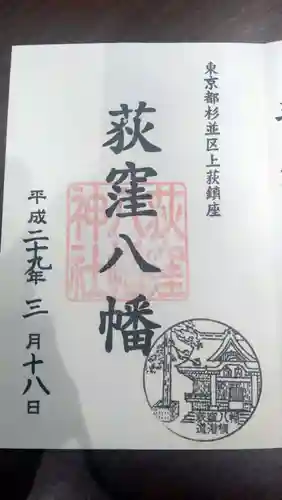 東京都杉並区上荻鎮座
荻窪八幡
荻窪
八幡
神社
平成二十九年三月十八日
荻窪八幡